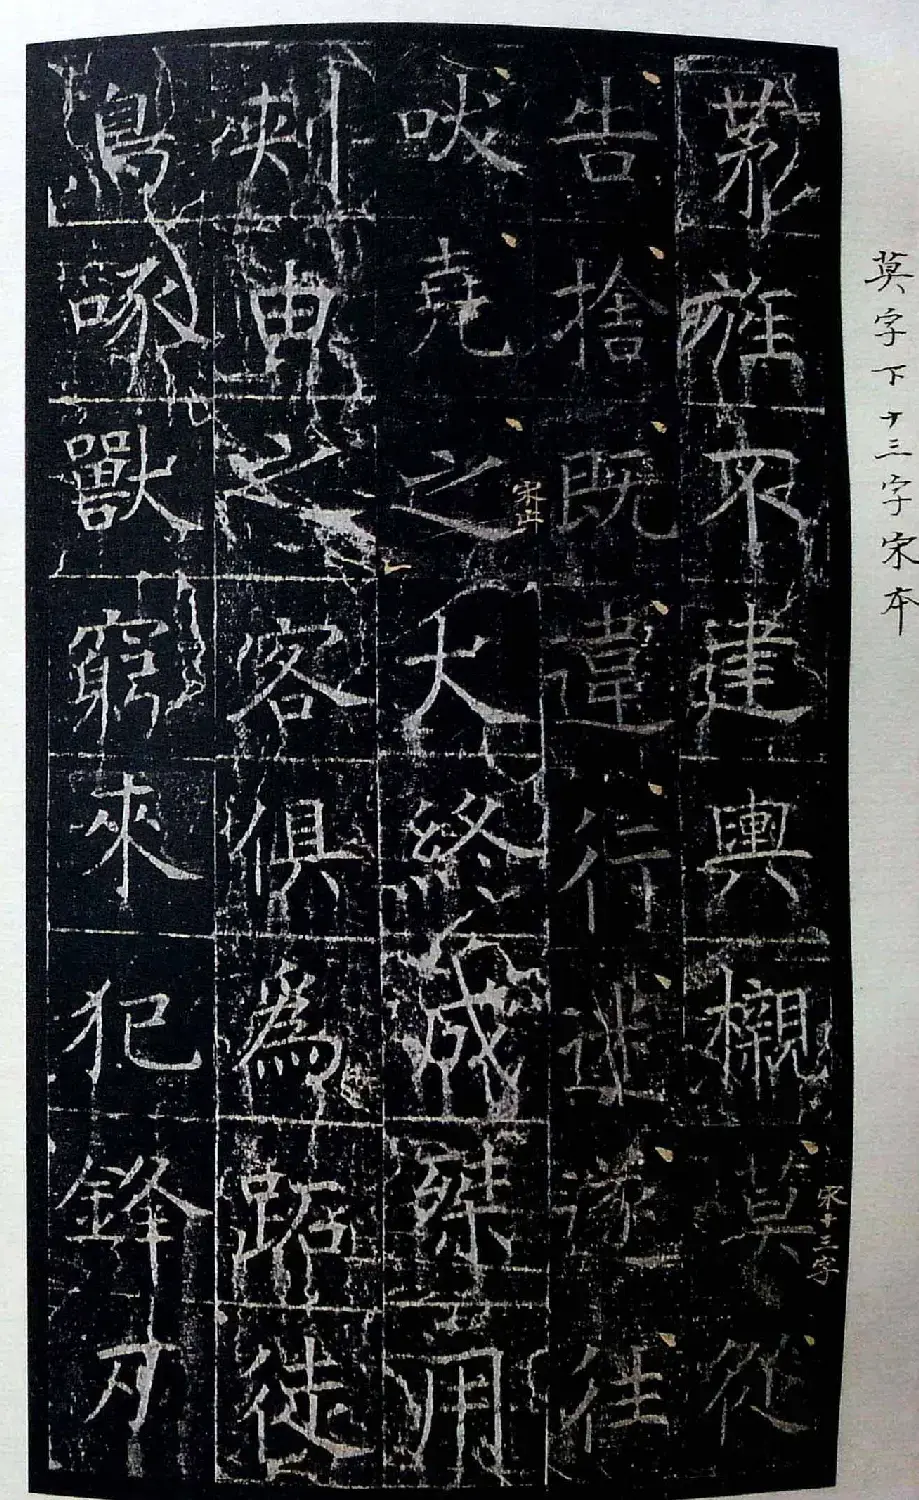 莫字下十三字宋本
旌不建輿櫬莫從
宋十三字
告捨既違行迷遂往
吠堯之犬終成桀用
宋止
刾由之客俱爲跖徒
鳥啄獸窮來犯鋒刃